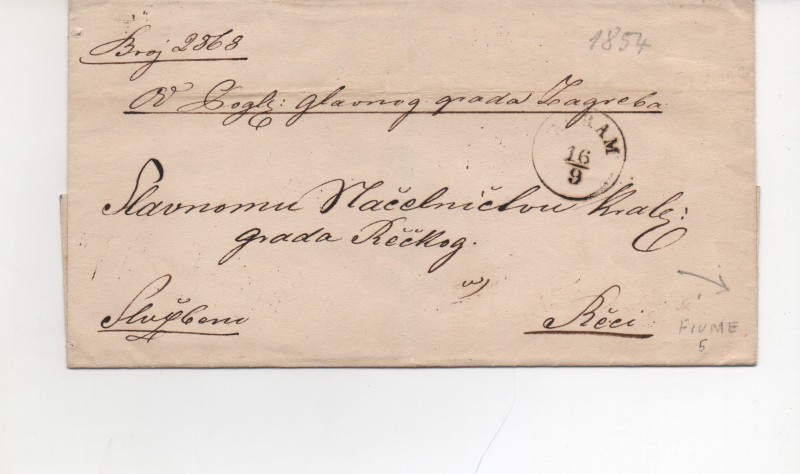 Broj 2868
1854
Od Pogl: glavnog grada Zagreba
RAM
16
9
Slavnomu Načelničtvu Kralj:
grada Rěčkog.
u
Službeno
Rěci
FIUME
5